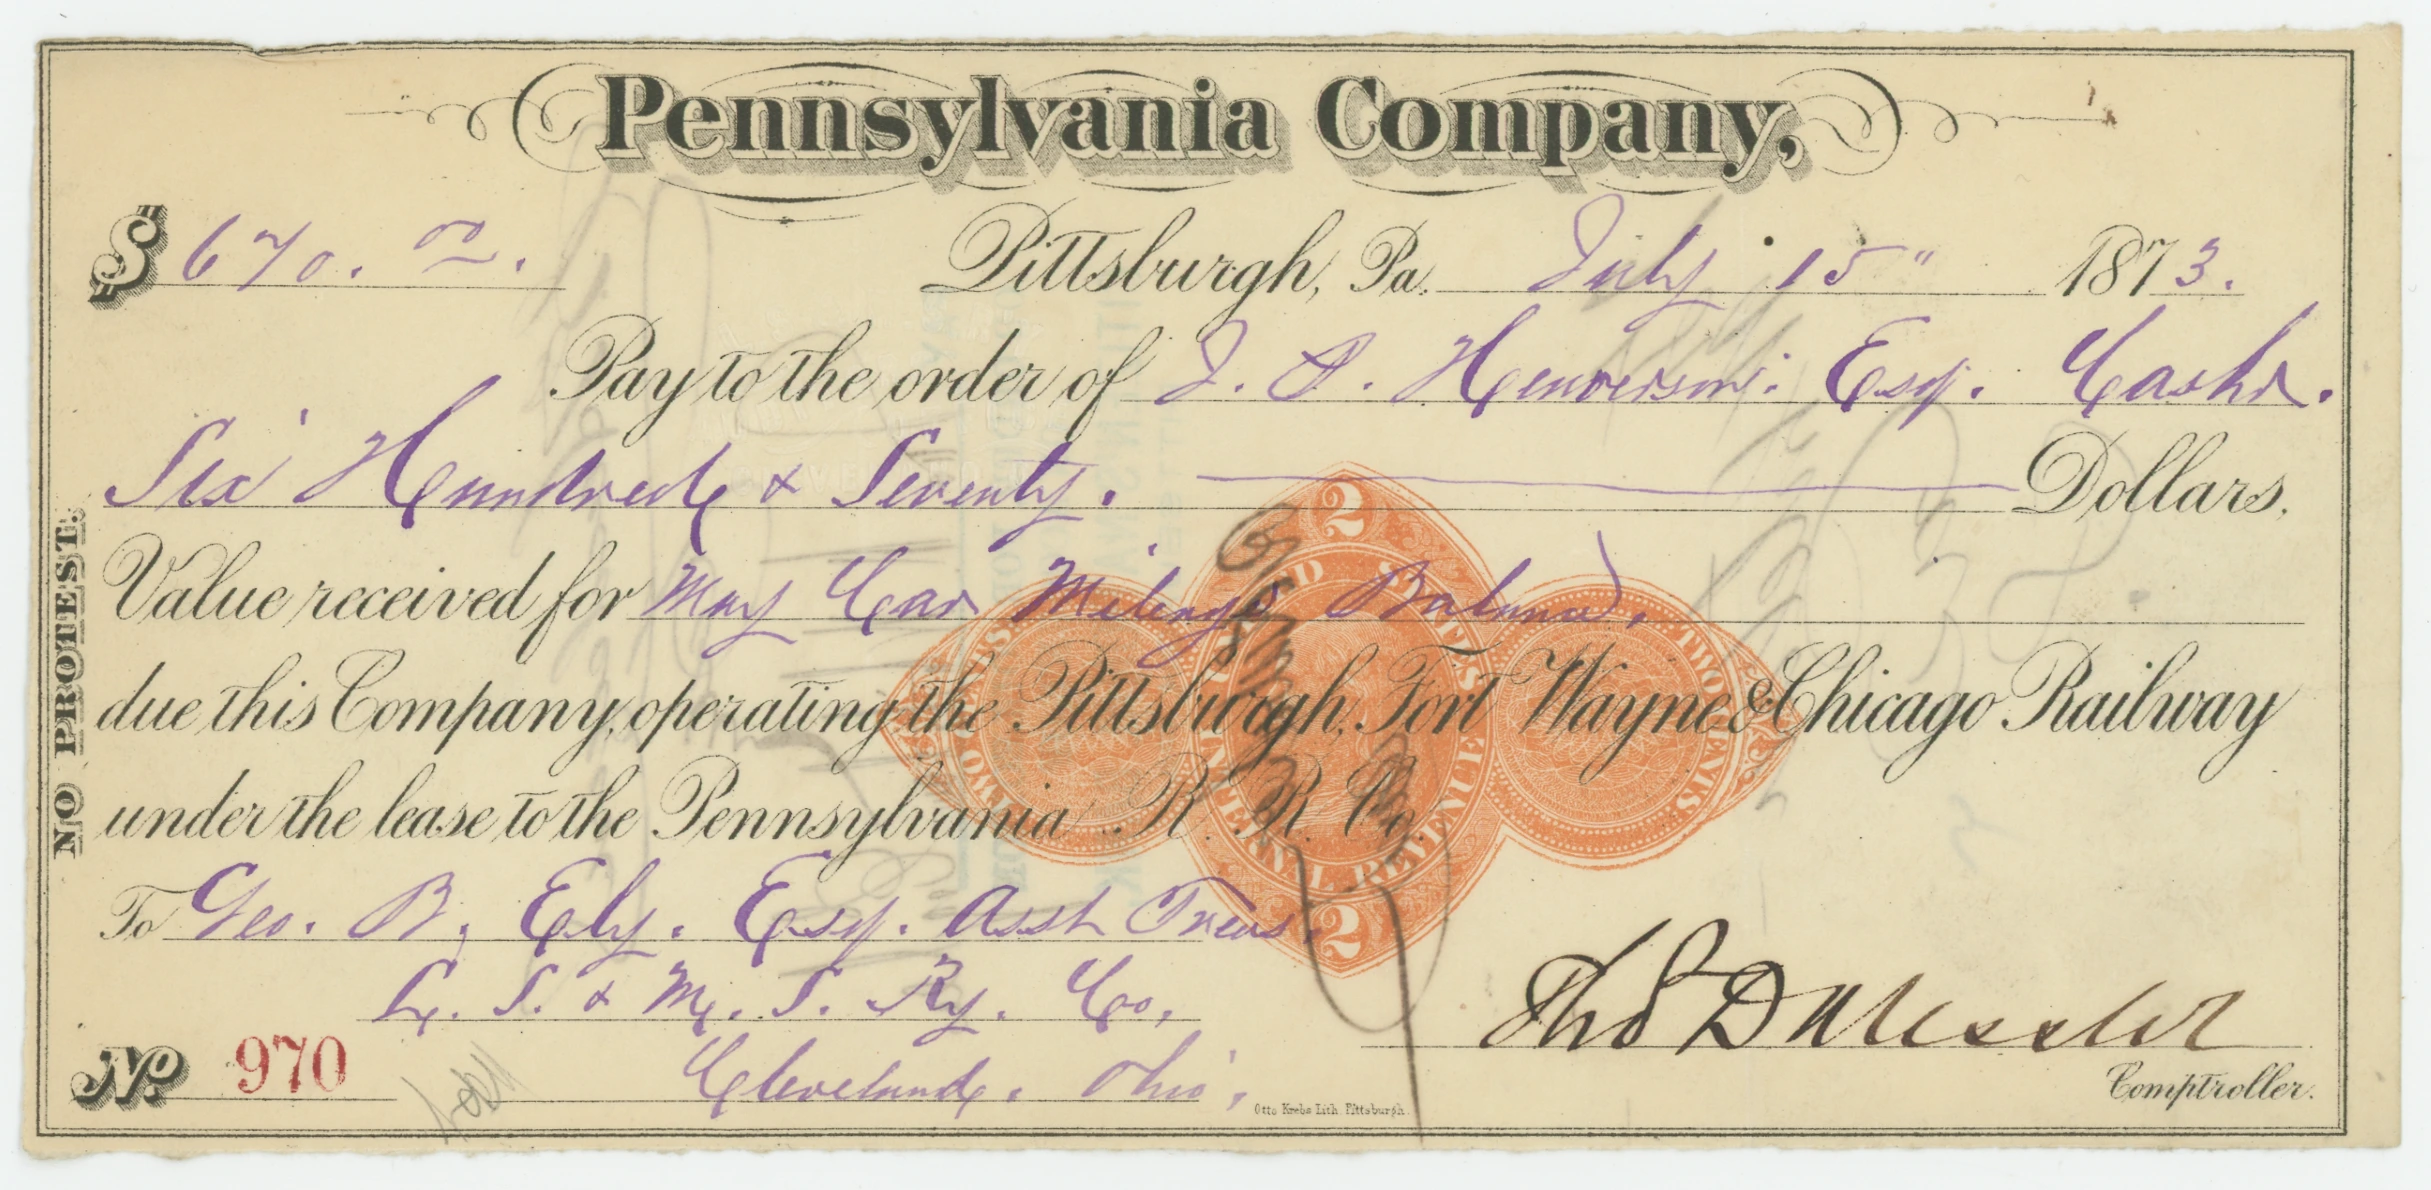 Pennsylvania Company,
$ 670.00. Pittsburgh, Pa. July 15" 1873.
Pay to the order of J. P. Henderson. Esq. Cashr.
Six Hundred & Seventy. Dollars,
NO PROTEST.
Value received for May Car Mileage Balance,
due this Company, operating the Pittsburgh, Fort Wayne & Chicago Railway
under the lease to the Pennsylvania R. R. Co.
To Geo. B. Ely. Esq. Asst Treas.
L. S. & M. S. Ry. Co,
Cleveland, Ohio,
No. 970
Thos D Messler
Comptroller.
Otto Krebs Lith. Pittsburgh.
2
UNITED STATES
INTERNAL REVENUE
TWO CENTS.
TWO CENTS.
2